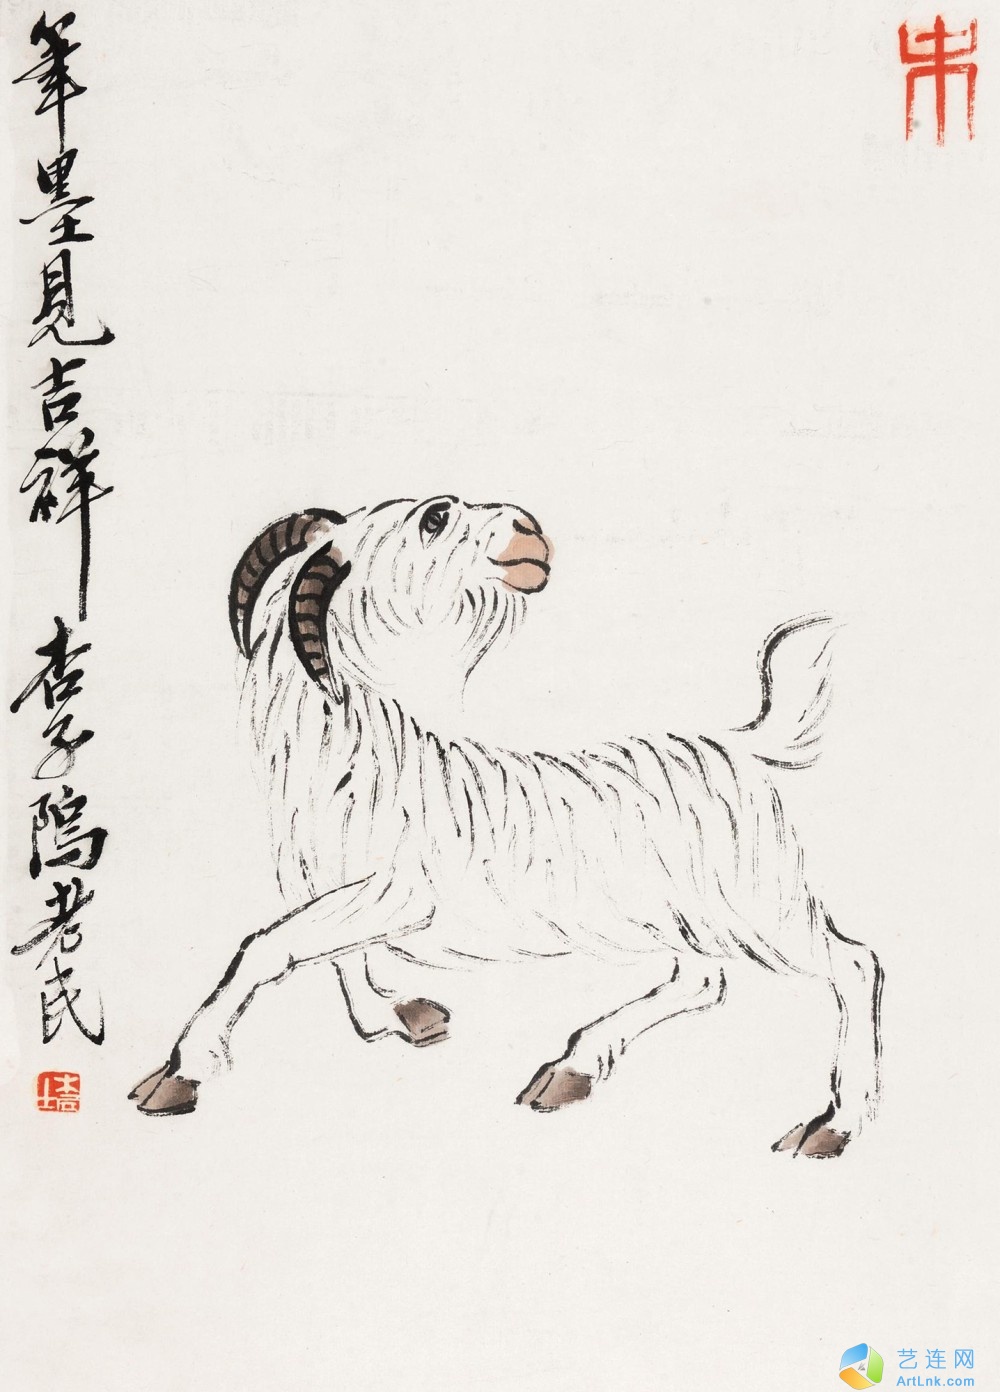 未
筆墨見吉祥 杏子隖老民
木居士
艺连网
ArtLnk.com